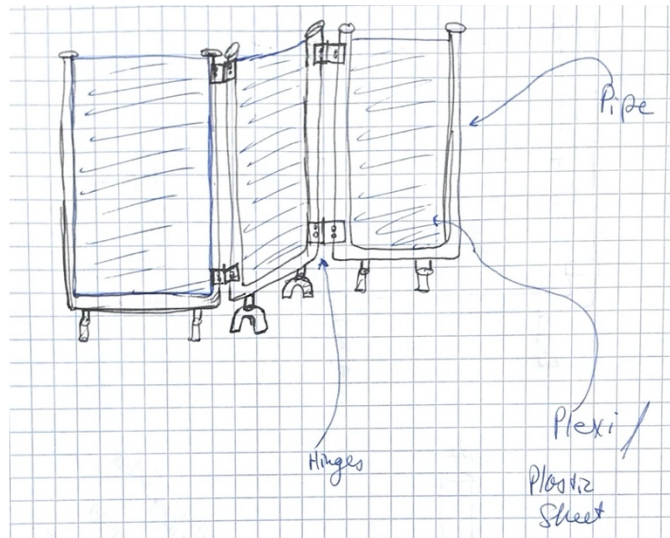 Pipe
Hinges
Plexi /
Plastic
Sheet